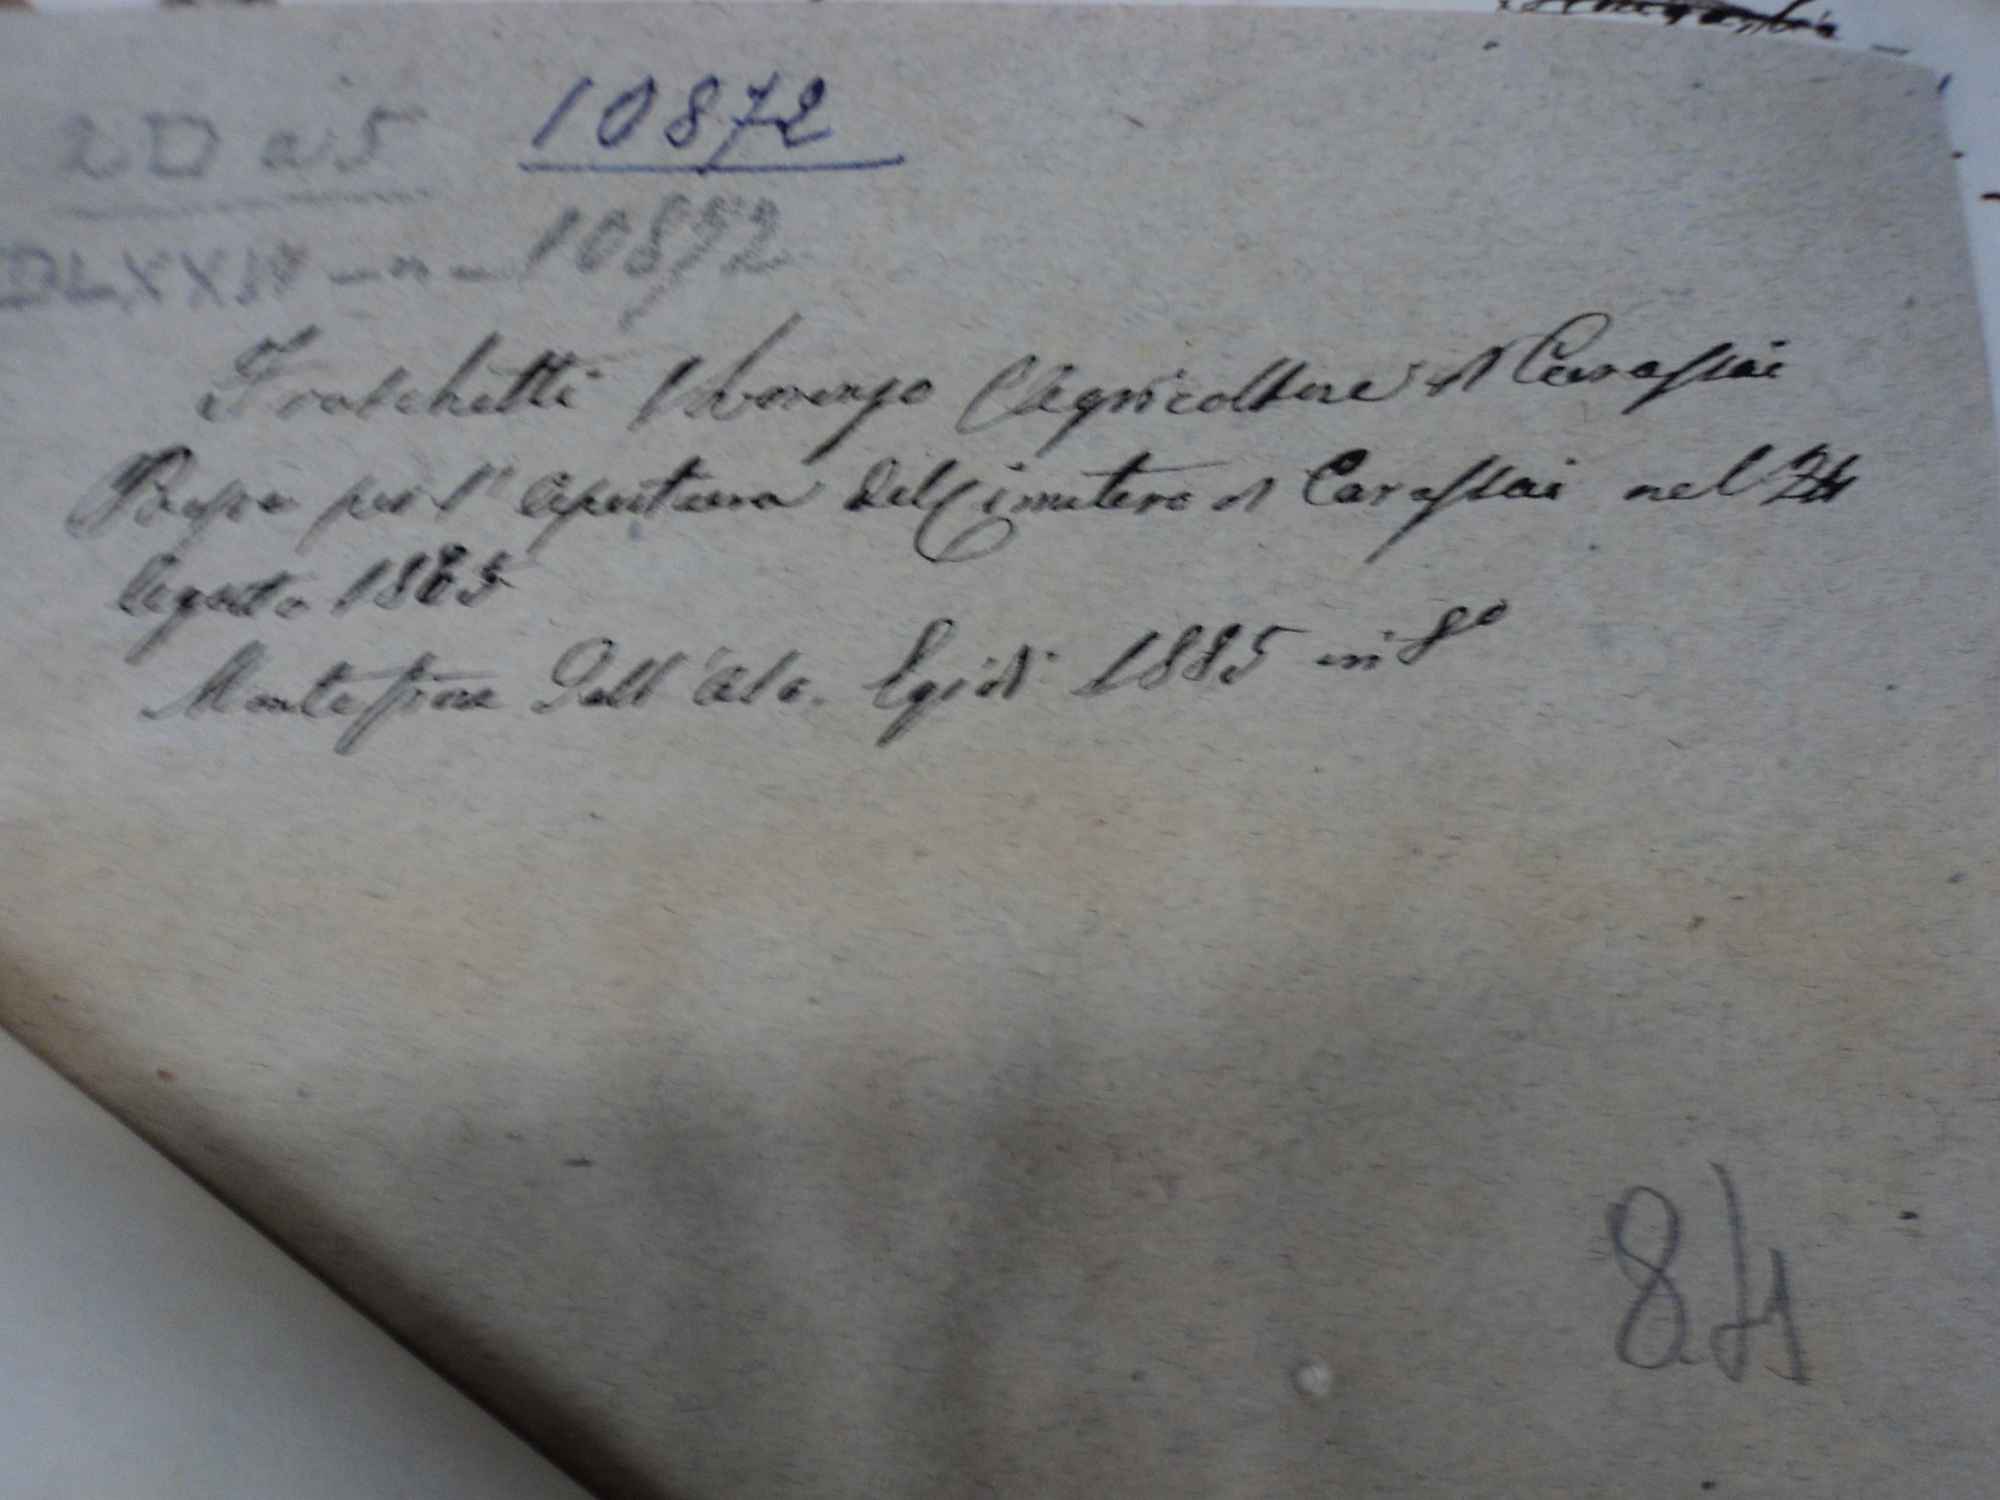 2 D a 5 10872
DLXXIV - n - 10872
Fraschetti Vincenzo Agricoltore di Carassai
Poesia per l'apertura del Cimitero di Carassai nel 24
Agosto 1885
Montefiore Dell'Aso. Egidi 1885 in 8°
84